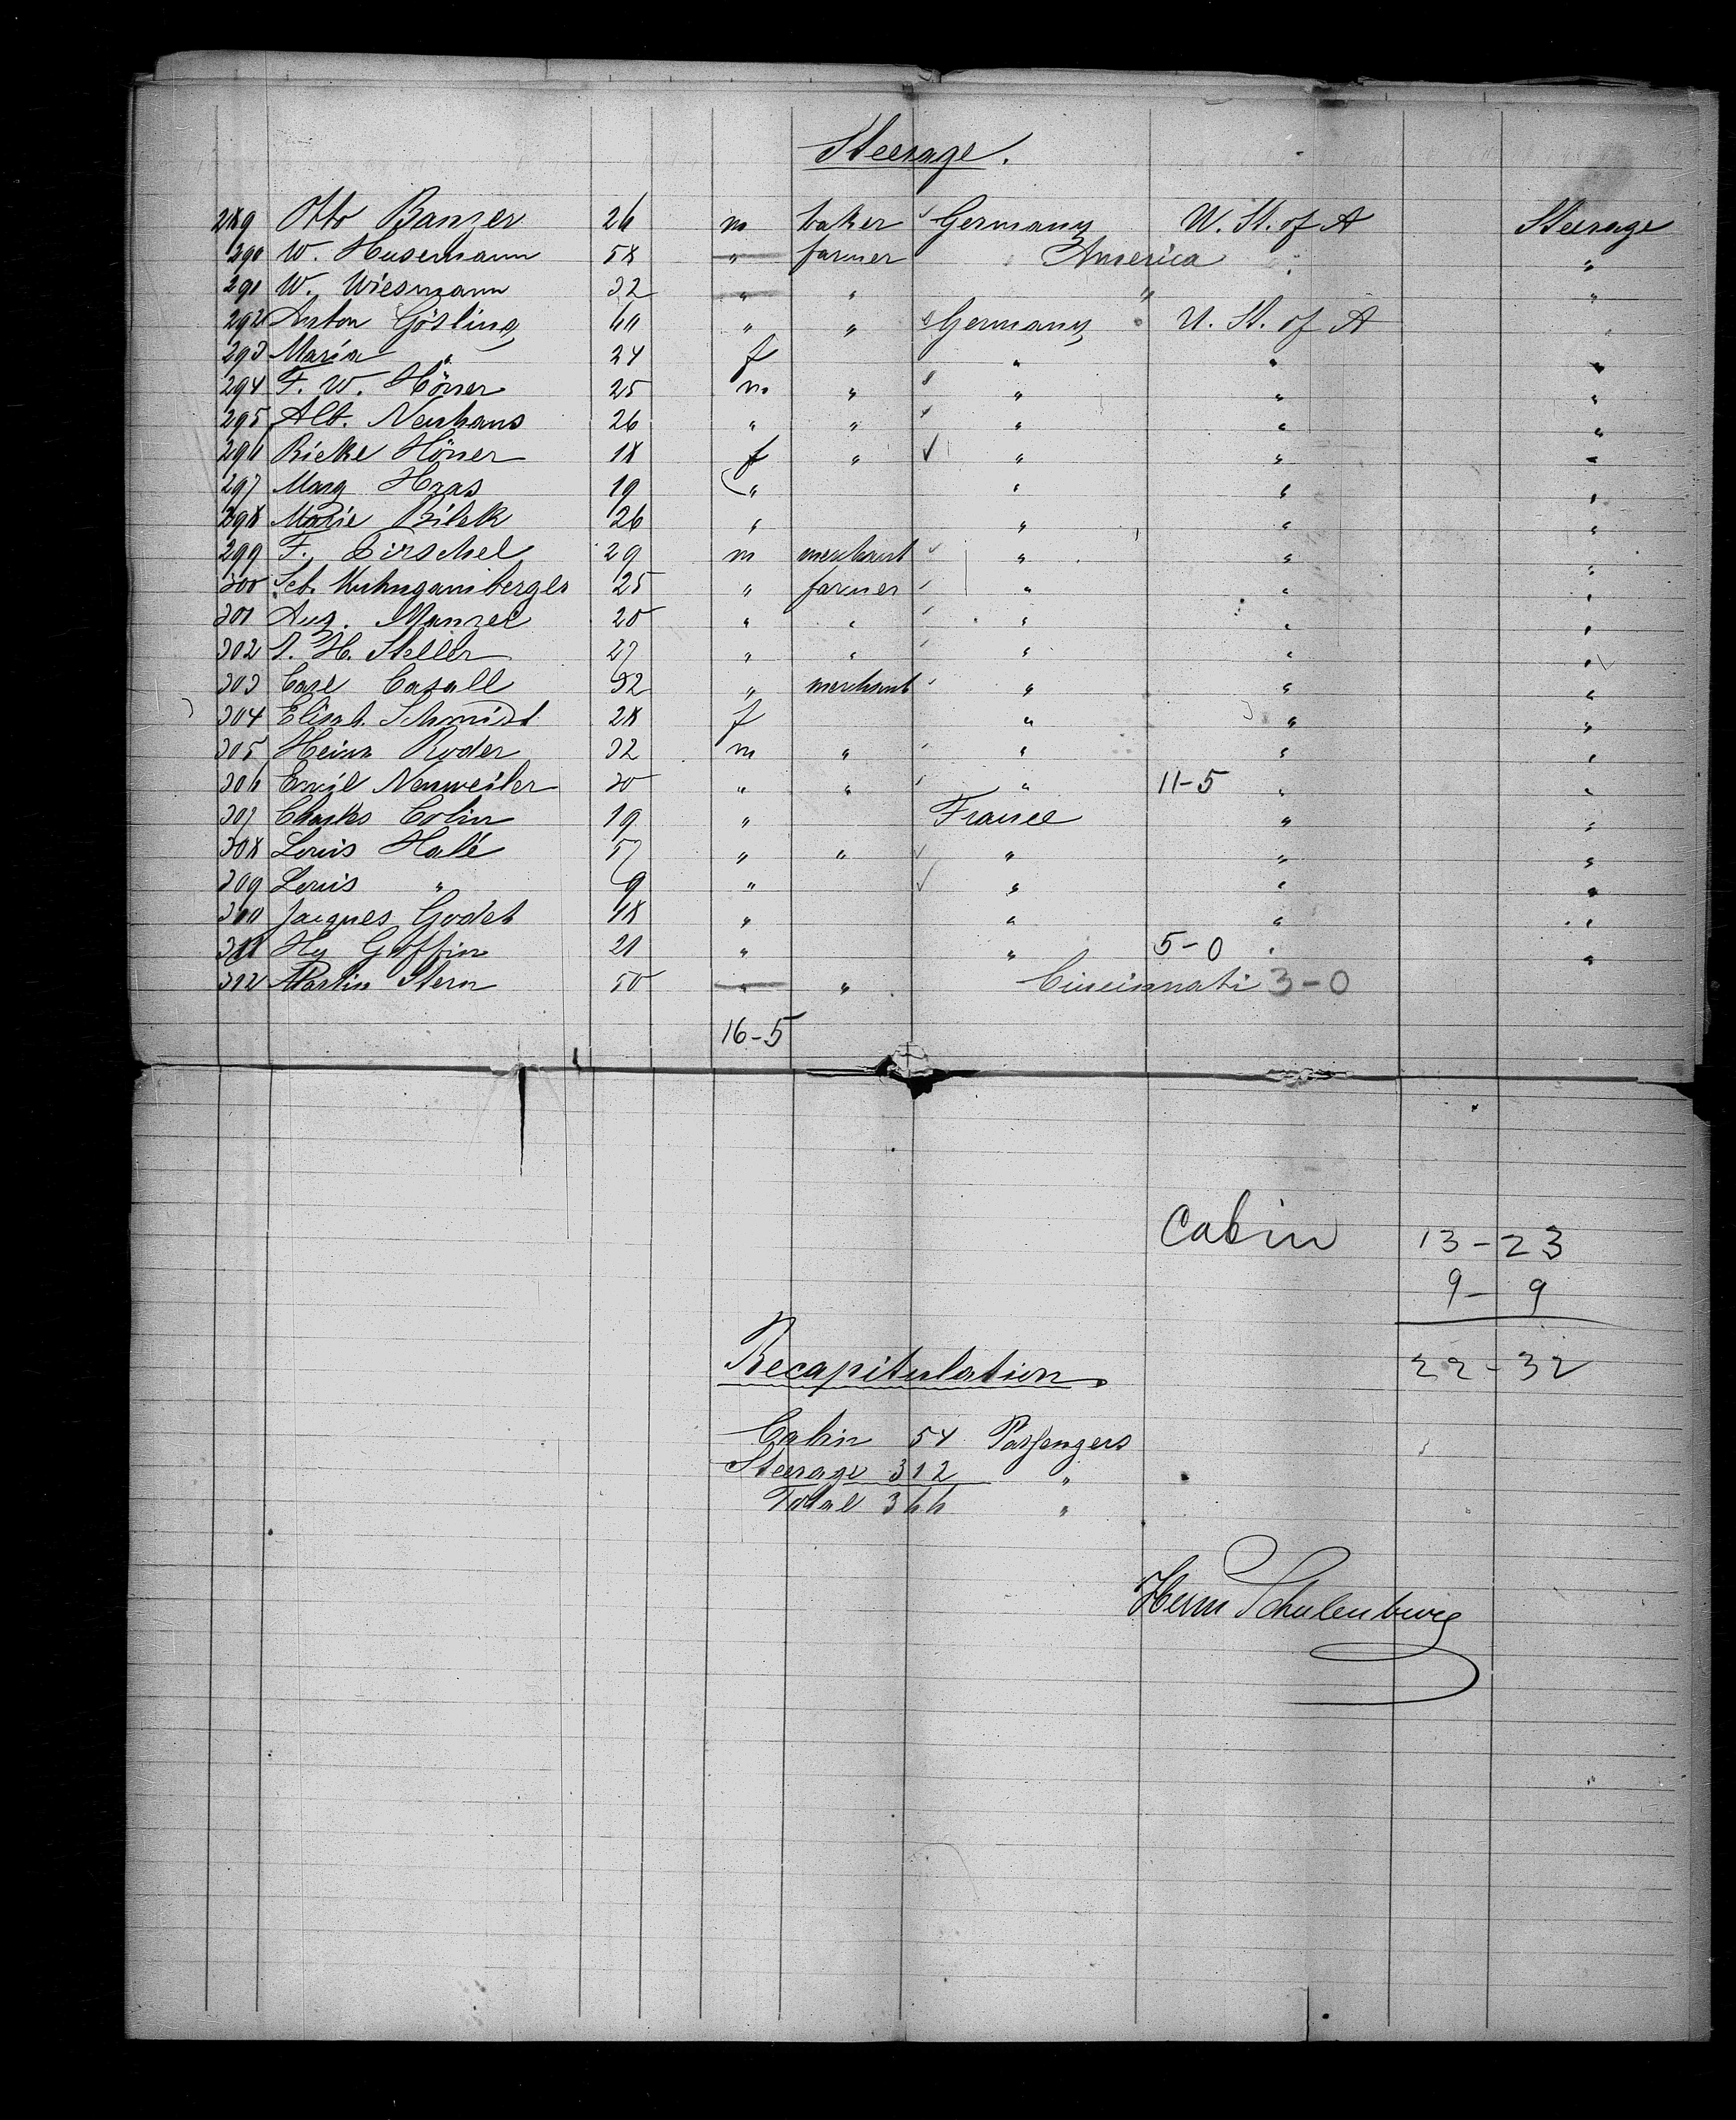 Steerage.
289 Otto Banzer 26 m baker Germany U. St. of A Steerage
290 W. Husemann 58 " farmer America " "
291 W. Wiesmann 32 " " " "
292 Anton Gösling 60 " " Germany U. St. of A "
293 Maria " 24 f " " "
294 F. W. Höner 25 m " " " "
295 Alb. Neuhaus 26 " " " " "
296 Rieke Höner 18 f " " " "
297 Marg Haas 19 " " " "
298 Marie Bilek 26 " " " "
299 F. Hirschel 29 m merchant " " "
300 Seb. 25 " farmer " " "
301 Aug. Manzei 20 " " " " "
302 H. Steller 27 " " " " "
303 Carl Casall 32 " merchant " " "
304 Elisab. Schmidt 28 f " " "
305 Heinr Roder 32 m " " " "
306 Emil Neuweiler 20 " " " 11-5 " "
307 Charles Colin 19 " France " "
308 Louis Halé 57 " " " " "
309 Louis " 9 " " " "
310 Jacques Godet 18 " " " "
311 Hy Goffin 21 " " 5-0 " "
312 Martin Stern 50 " " Cincinnati 3-0
16-5
Cabin 13-23
9-9
22-32
Recapitulation.
Cabin 54 Passengers
Steerage 312 "
Total 366 "
Herm Schulenburg